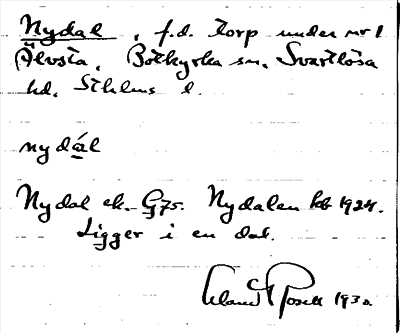 Nydal, f.d. torp under nr 1
Älvsta, Botkyrka sn, Svartlösa
hd, Sthlms l.
nydál
Nydal ek. G75. Nydalen kb 1924.
Ligger i en dal.
1930